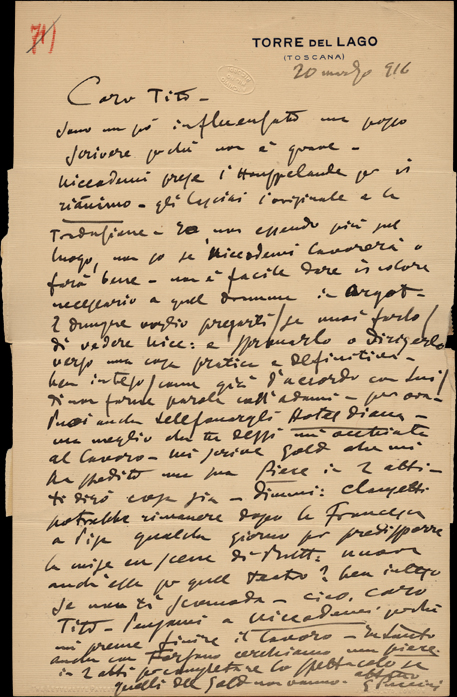 71
TORRE DEL LAGO
(TOSCANA)
20 marzo 916
Caro Tito –
sono un pò influenzato ma posso
scrivere perchè non è grave –
Niccodemi prese l'Houppelande per il
– gli lasciai l'originale e la
traduzione – Io non essendo più sul
luogo, non so se Niccodemi lavorerà o
farà bene – non è facile dare il colore
necessario a quel dramma in argot –
E dunque voglio pregarti/se vuoi farlo/
di vedere Nicc: e spronarlo o dirigerlo
verso una cosa pratica e definitiva –
ben inteso/come già d'accordo con lui/
di non farne parola coll'adami – per ora –
Puoi anche telefonargli Hotel Diana –
ma meglio che tu dessi un'occhiata
al lavoro – mi scrive Gold che mi
ha spedito una sua pièce in 2 atti –
ti dirò cosa sia – dimmi: Clausetti
potrebbe rimanere dopo la Francesca
a Pisa qualche giorno per predisporre
la mise en scène di nuova
anch'essa per quel teatro? ben inteso
se non ti scomoda – ciao, caro
Tito – Pensami a Niccodemi perchè
mi preme finire il lavoro – Intanto
anche con Forzano cerchiamo una pièce
in 2 atti per completare lo spettacolo se
quelli del Gold non vanno –
GPuccini